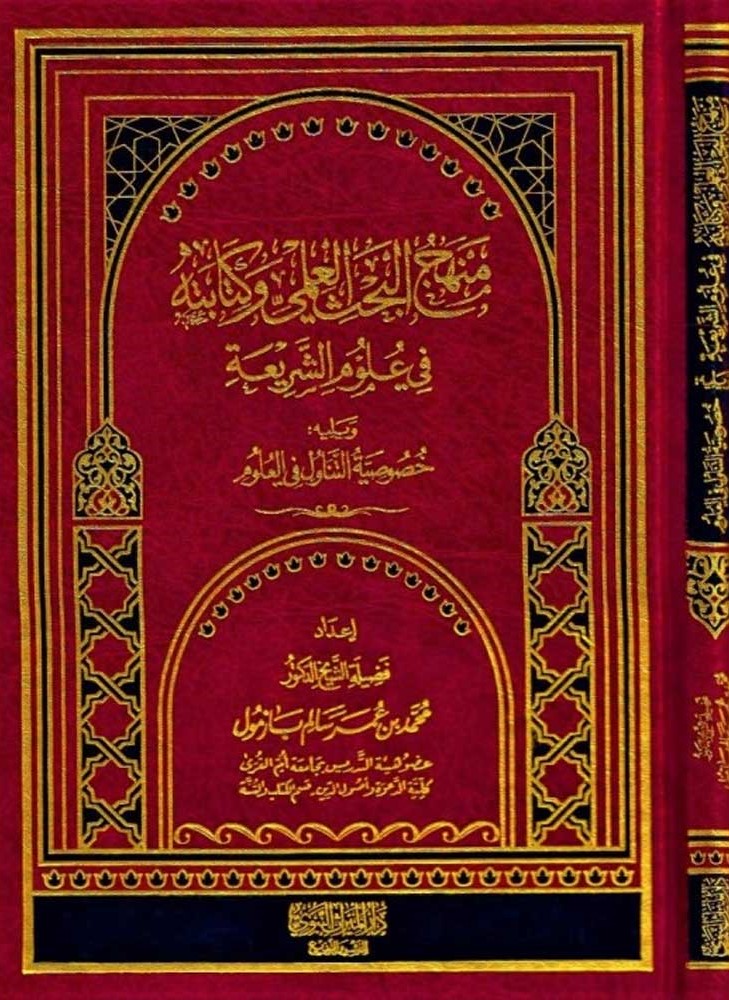 منهج البحث العلمي وكتابته
في علوم الشريعة
ويليه:
خصوصية التناول في العلوم
إعداد
فضيلة الشيخ الدكتور
محمد بن عمر سالم بازمول
عضو هيئة التدريس بجامعة أم القرى
كلية الدعوة وأصول الدين قسم الكتاب والسنة
دار الميراث النبوي
للنشر والتوزيع
منهج البحث العلمي وكتابته في علوم الشريعة
خصوصية التناول في العلوم